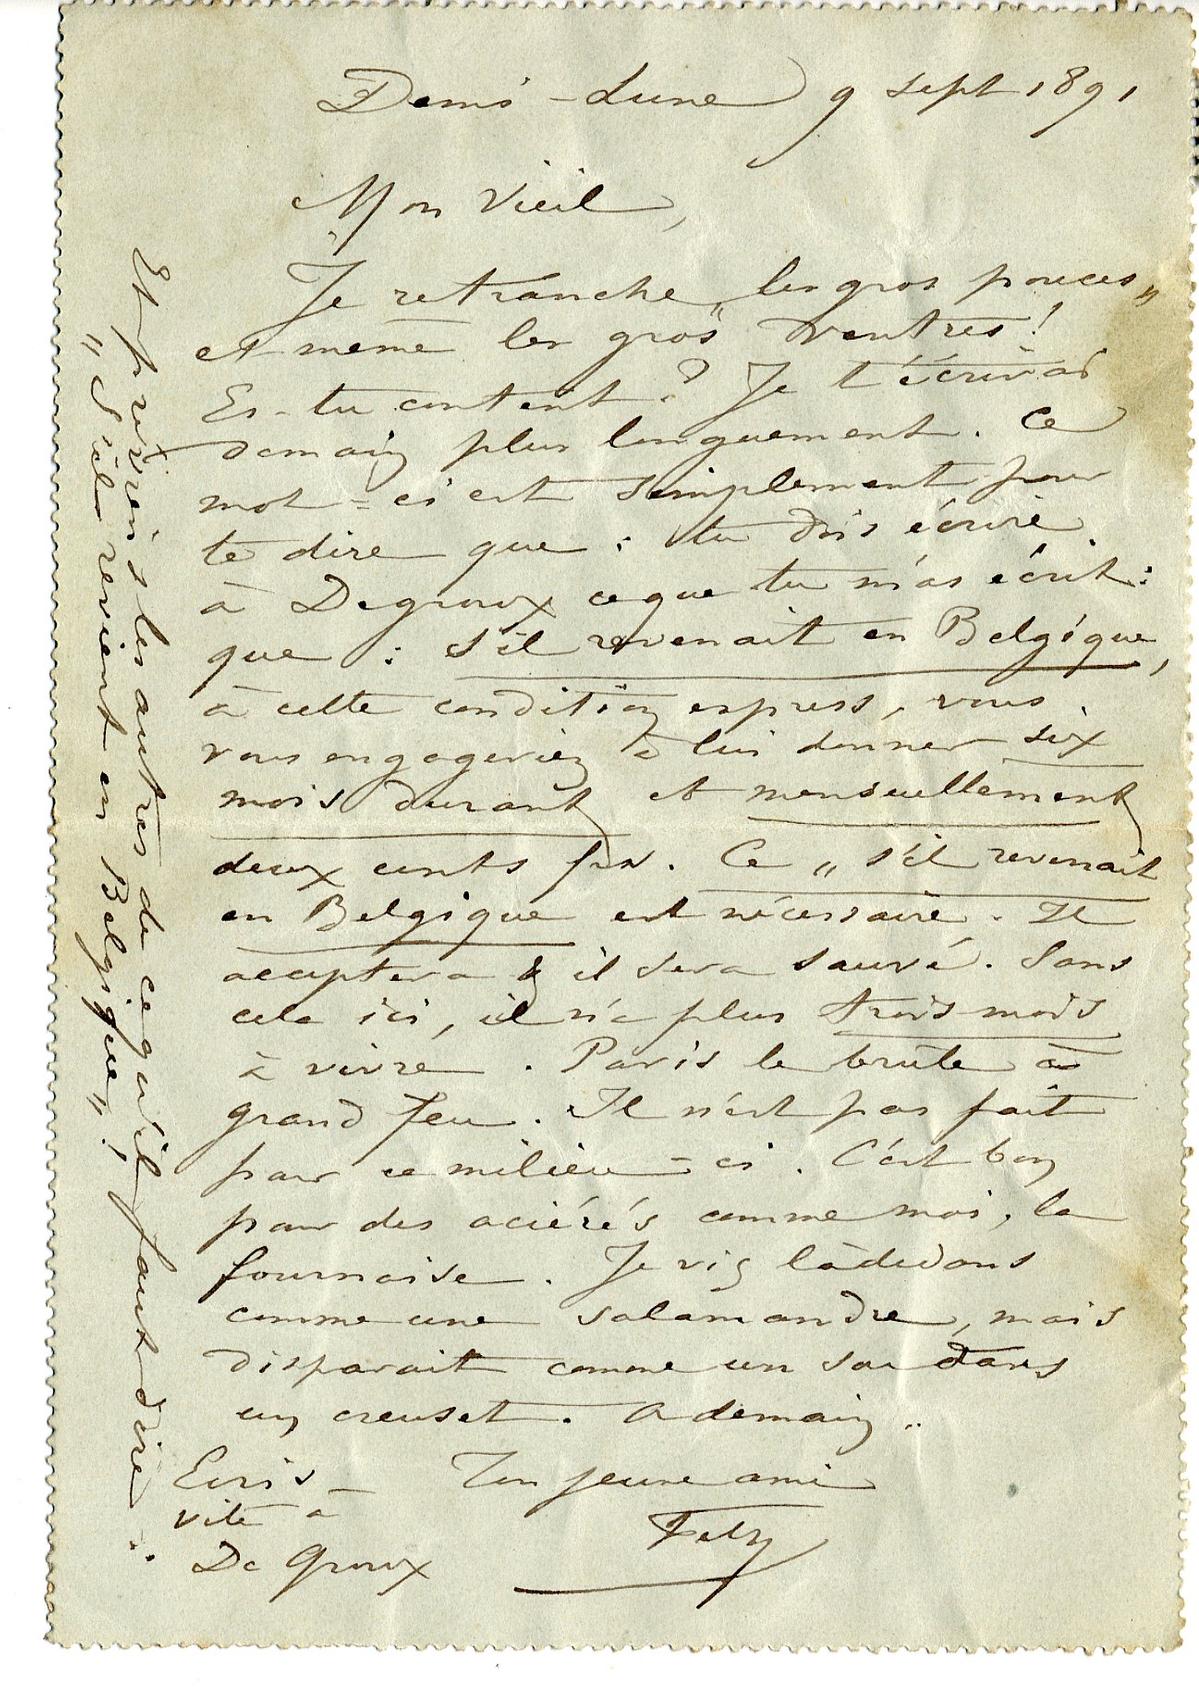 Demi-Lune 9 sept 1891
Mon Vieil,
Je retranche „les gros pouces„
et même les gros ventres!
Es-tu content? Je t'écrirai
demain plus longuement. Ce
mot-ci est simplement pour
te dire que: tu dois écrire
à Degroux ce que tu m'as écrit:
que: s'il revenait en Belgique,
à cette condition express, vous
vous engageriez à lui donner six
mois durant et mensuellement
deux cents frs. Ce „s'il revenait
en Belgique est nécessaire. Il
acceptera & il sera sauvé. Sans
cela ici, il n'a plus trois mois
à vivre. Paris le brûle à
grand feu. Il n'est pas fait
pour ce milieu-ci. C'est bon
pour des aciérés comme moi, la
fournaise. Je vis làdedans
comme une salamandre, mais
disparait comme un sou dans
un creuset. A demain..
Ton jeune ami
Fély
Ecris
vite à
De Groux
Et préviens les autres de ce qu'il faut dire:
„S'il revient en Belgique„!